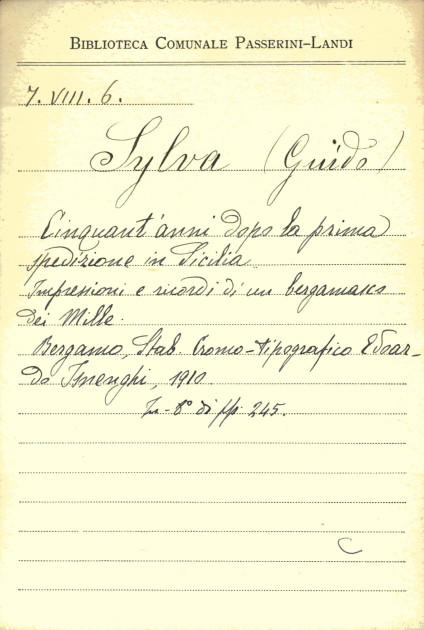 BIBLIOTECA COMUNALE PASSERINI-LANDI
7. VIII. 6.
Sylva (Guido)
Cinquant'anni dopo la prima
spedizione in Sicilia
Impressioni e ricordi di un bergamasco
dei Mille.
Bergamo, Stab. Cromo-tipografico Edoar-
do Isnenghi, 1910
In-8° di pp. 245.
C